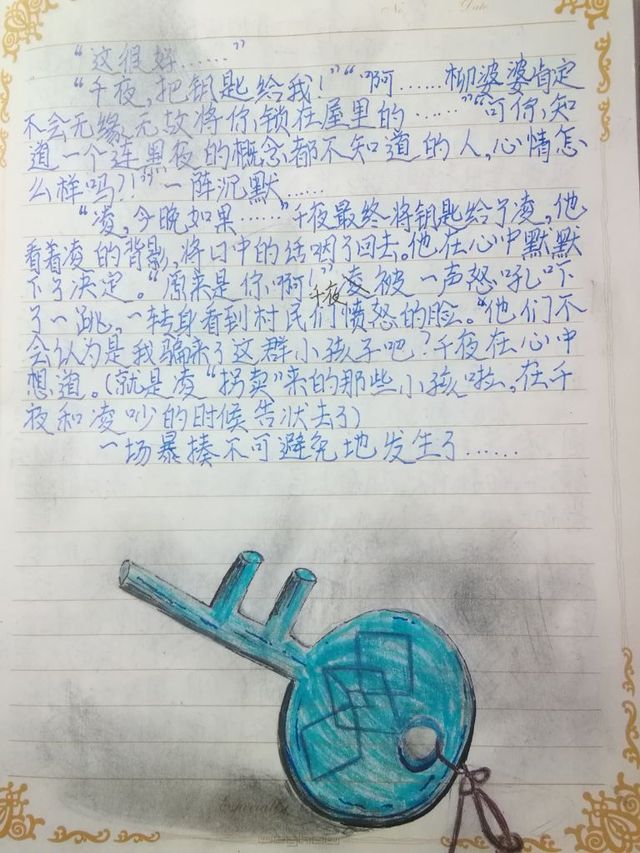 No
Date
“这很好……”
“千夜,把钥匙给我!”“啊……柳婆婆肯定
不会无缘无故将你锁在屋里的……”“可你,知
道一个连黑夜的概念都不知道的人,心情怎
么样吗?!”一阵沉默……
“凌,今晚如果……”千夜最终将钥匙给了凌,他
看着凌的背影,将口中的话咽了回去。他在心中默默
下了决定。“原来是你啊!”千夜被一声怒吼吓
了一跳,一转身看到村民们愤怒的脸。“他们不
会认为是我骗来了这群小孩子吧?千夜在心中
想道。(就是凌“拐卖”来的那些小孩啦,在千
夜和凌吵的时候告状去了)
一场暴揍不可避免地发生了……